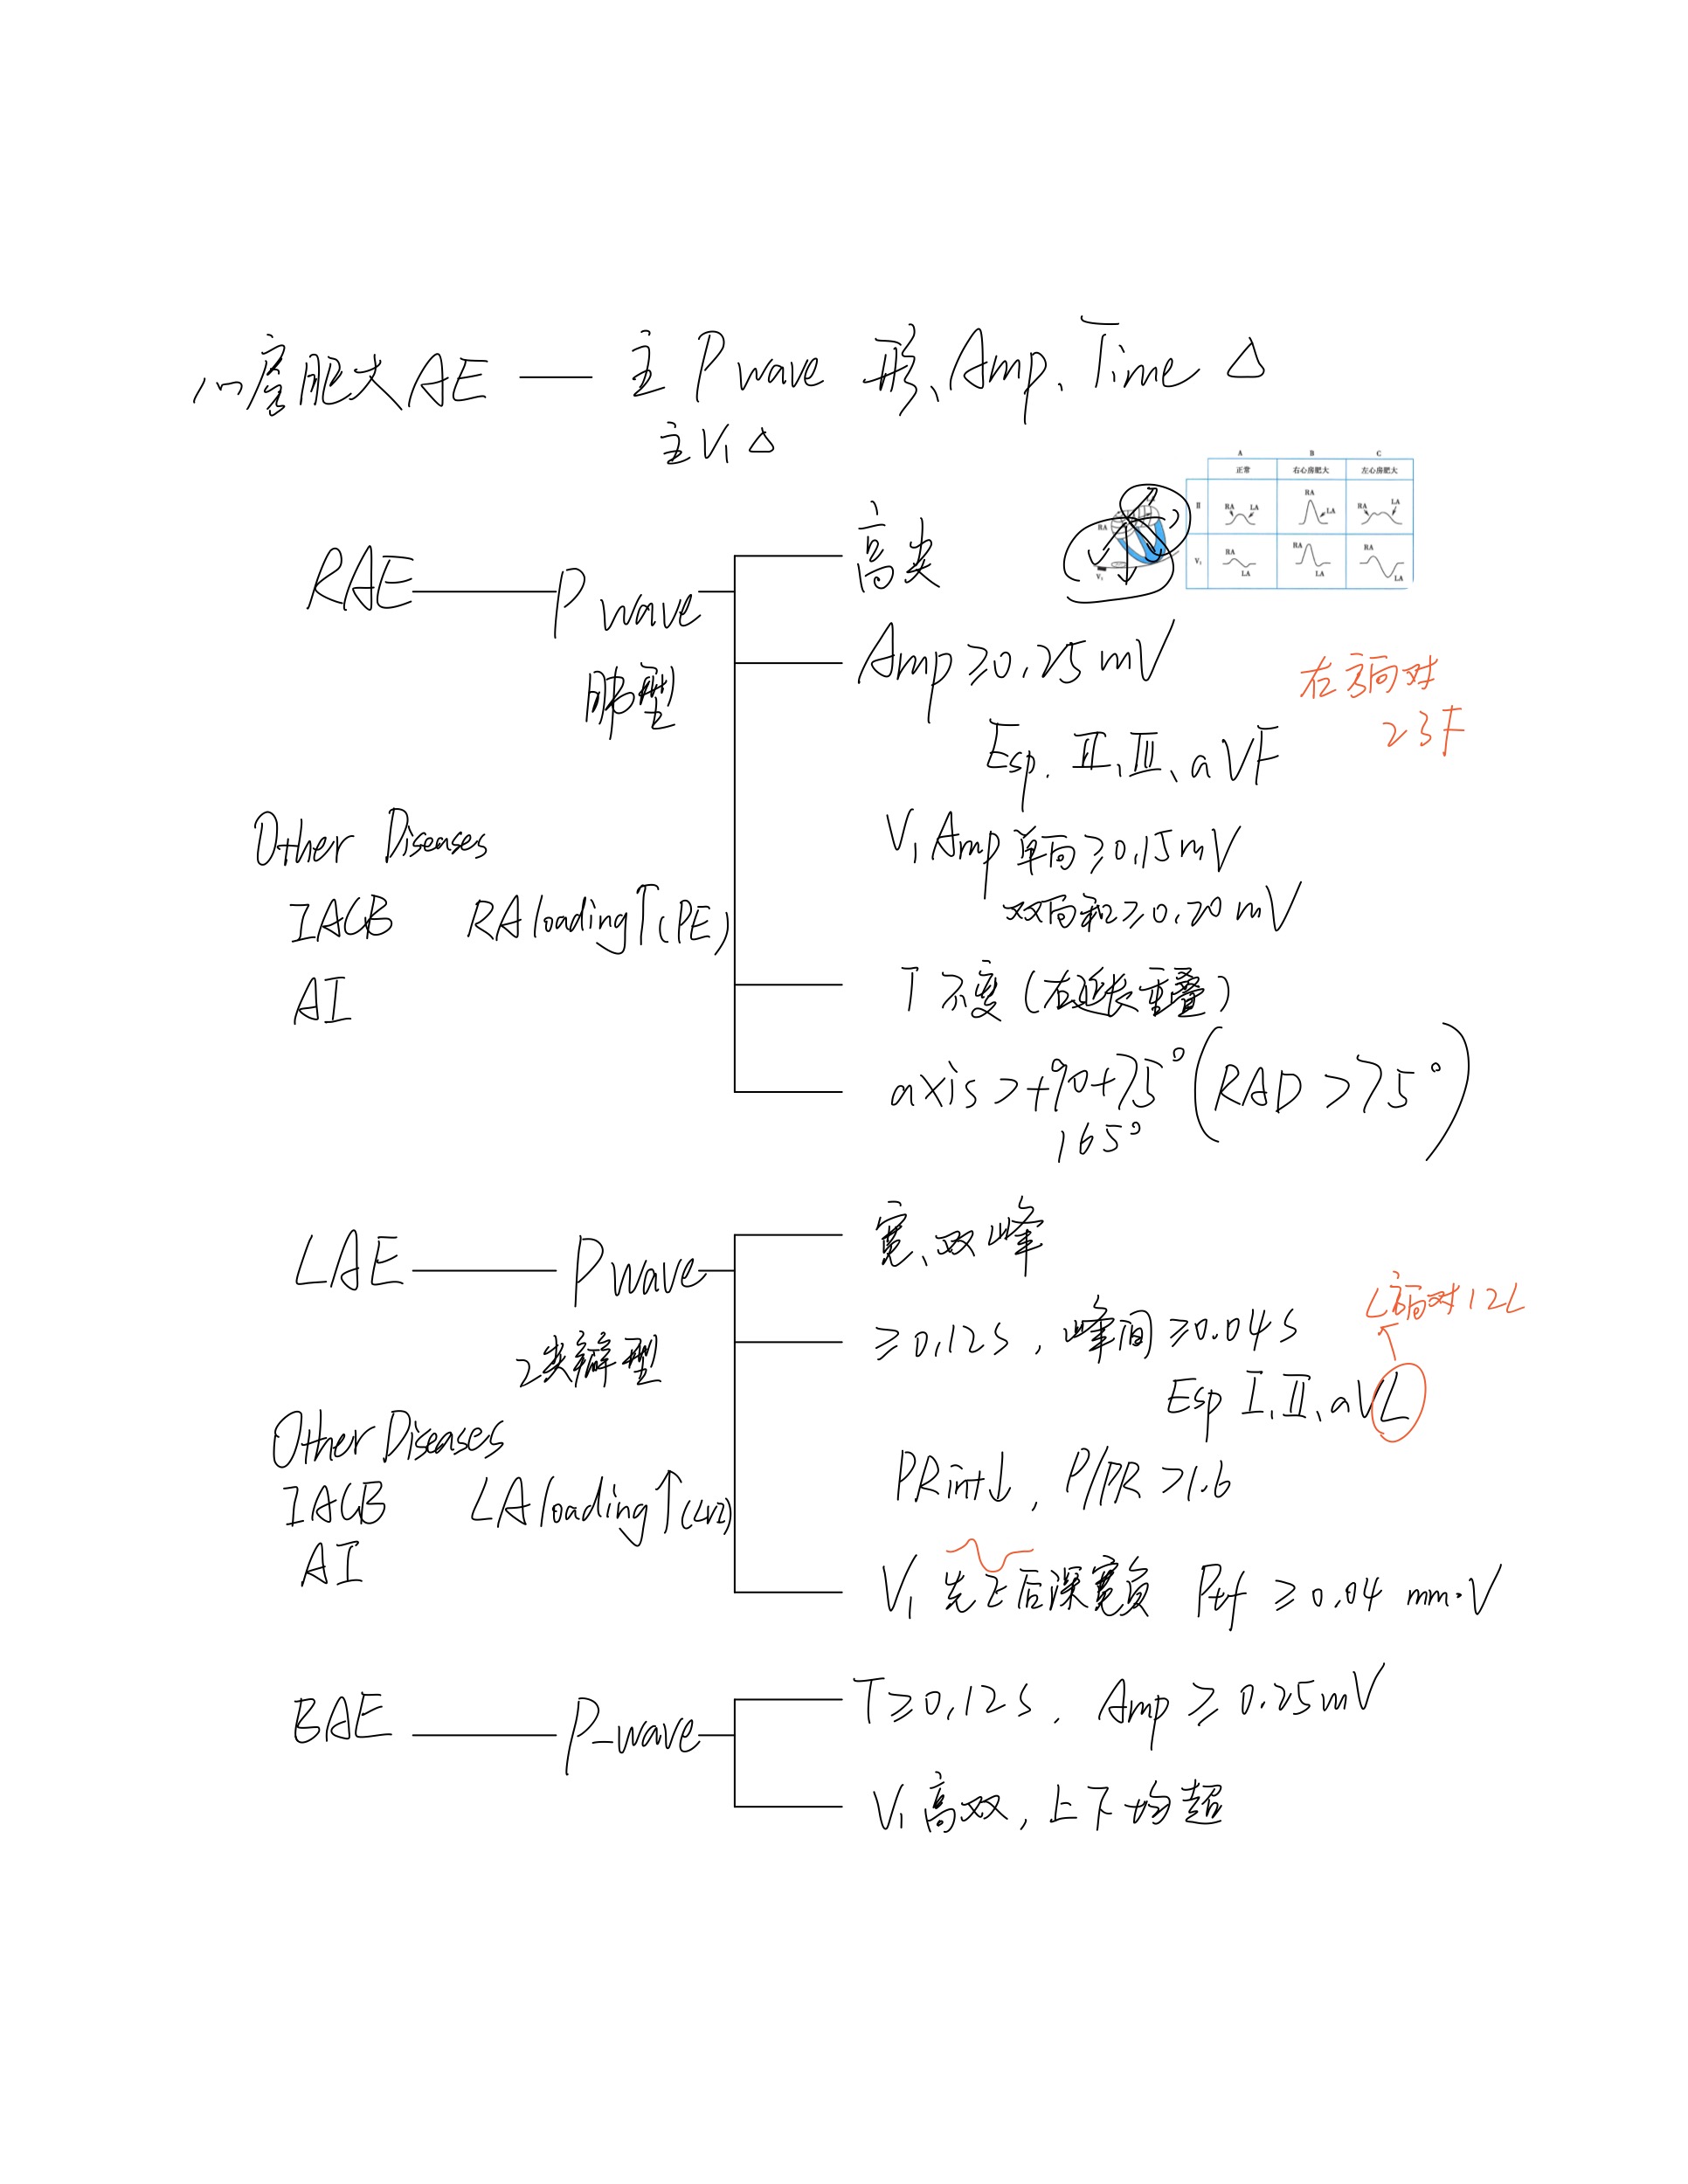 心房肥大 AE — 主 P wave 形、Amp、Time △
主 V₁ △
A B C
正常 右心房肥大 左心房肥大
II RA LA RA LA RA LA
V₁ RA LA RA LA RA LA
RA
V₁
RAE P wave
肺型
高尖
Amp ≥0.25 mV
Esp. II、III、aVF
右 对
23F
V₁ Amp 单向 ≥0.15 mV
双向和 ≥0.20 mV
T 不变 (右延长重叠)
axis > +90+75° (RAD >75°)
165°
Other Diseases
IACB RA loading↑(PE)
AI
LAE P wave
2尖瓣型
宽、双峰
≥0.12s, 峰间 ≥0.04s
Esp I、II、aVL
L 对 12L
PR int↓, P/PR >1.6
V₁ 先正后深宽负 Ptf ≥0.04 mm·V
Other Diseases
IACB LA loading↑
AI
BAE P-wave
T≥0.12s. Amp ≥ 0.25mV
V₁ 高双, 上下均超